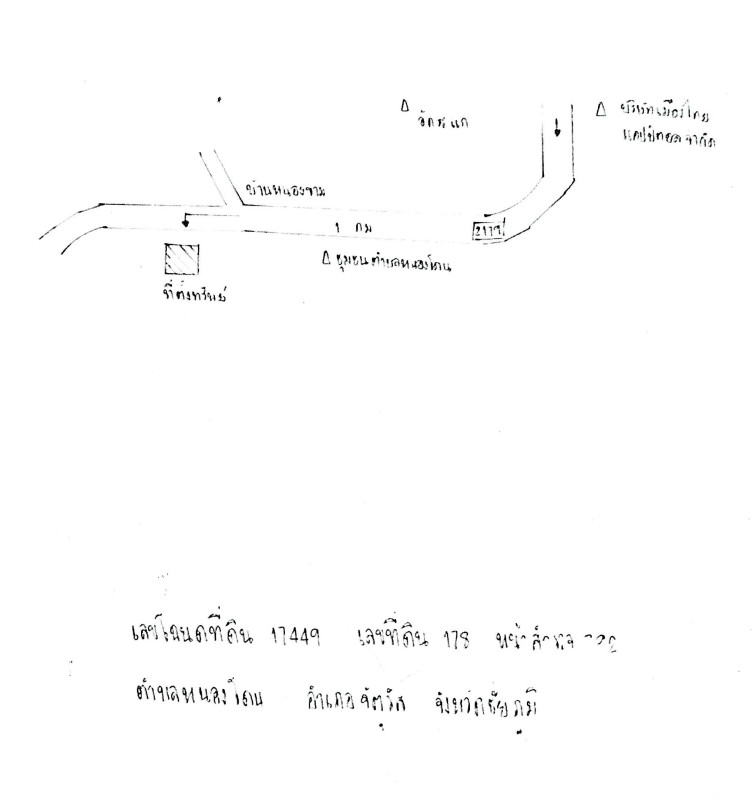 วัดสระแก
บริษัทเมืองไทย
แคปปิตอล จำกัด
บ้านหนองขาม
1 กม
2179
ชุมชนตำบลหนองโดน
ที่ตั้งทรัพย์
เลขโฉนดที่ดิน 17449 เลขที่ดิน 178 หน้าสำรวจ
ตำบลหนองโดน อำเภอจัตุรัส จังหวัดชัยภูมิ